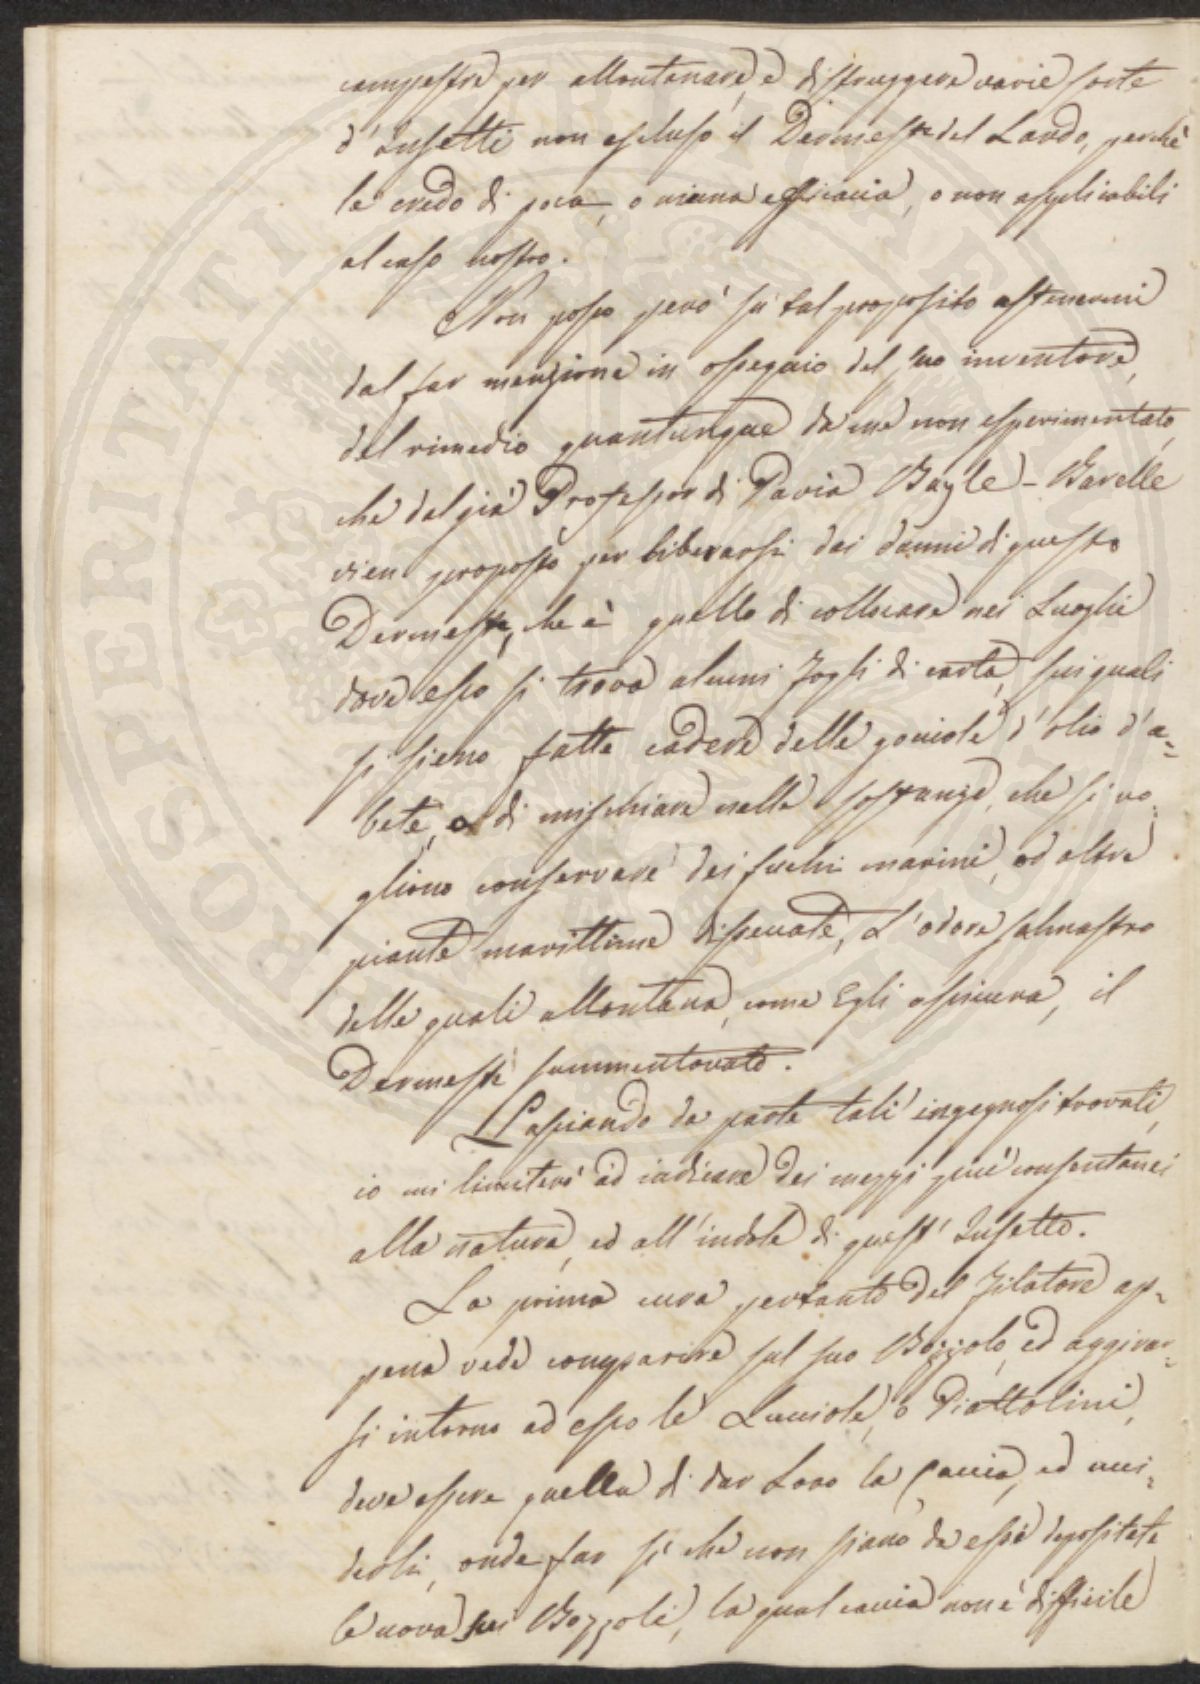 campestre per allontanare, e distruggere varie sorte
d'Insetti non escluso il Dermeste del Lardo, perchè
le credo di poca, o niuna efficacia, o non applicabili
al caso nostro.
Non posso però su tal proposito astenermi
dal far menzione in ossequio del suo inventore,
del rimedio quantunque da me non esperimentato,
che dal già Professor di Pavia Bayle-Barelle
vien proposto per liberarsi dai danni di questo
Dermeste, che è quello di collocare nei Luoghi
dove esso si trova alcuni Fogli di carta, sui quali
si sieno fatte cadere delle gocciole d'olio d'a=
bete, o di mischiare nelle sostanze, che si vo=
gliono conservare dei fuchi marini, od altre
piante marittime disseccate, L'odore salmastro
delle quali allontana, come Egli assicura, il
Dermeste summentovato.
Lasciando da parte tali ingegnosi trovati,
io mi limiterò ad indicare dei mezzi più consentanei
alla natura, ed all'indole di quest'Insetto.
La prima cura pertanto del Filatore ap=
pena vede comparire sul suo Bozzolo, ed aggirar=
si intorno ad esso le Lucciole, o Piattolini,
deve essere quella di dar Loro la Caccia, ed ucci=
derli, onde far sì che non siano da essi depositate
le uova sui Bozzoli, la qual caccia non è difficile